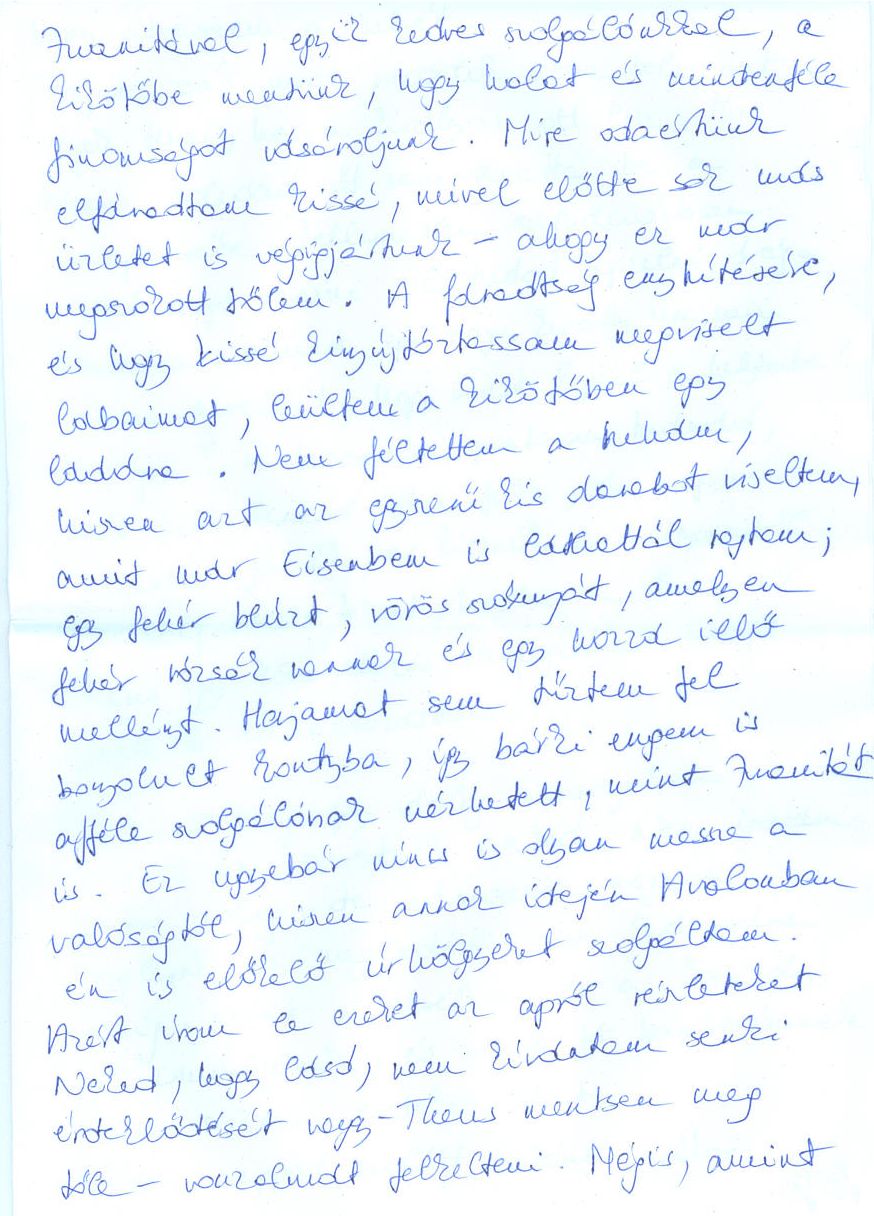 Juanitával, egyik kedves szolgálónkkal, a
kikötőbe mentünk, hogy halat és mindenféle
finomságot vásároljunk. Mire odaértünk
elfáradtam kissé, mivel előtte sok más
üzletet is végigjártunk – ahogy ez már
megszokott tőlem. A fáradtság enyhítésére,
és hogy kissé kinyújtóztassam megviselt
lábaimat, leültem a kikötőben egy
ládára. Nem féltettem a ruhám,
hiszen azt az egyszerű kis darabot viseltem,
amit már Eisenben is láthattál rajtam;
egy fehér blúzt, vörös szoknyát, amelyen
fehér rózsák vannak és egy hozzá illő
mellényt. Hajamat sem tűztem fel
bonyolult kontyba, így bárki engem is
afféle szolgálónak nézhetett, mint Juanitát
is. Ez ugyebár nincs is olyan messze a
valóságtól, hiszen annak idején Avalonban
én is előkelő úrhölgyeket szolgáltam.
Azért írom le ezeket az apró részleteket
Neked, hogy lásd, nem kívántam senki
érdeklődését vagy – Theus mentsen meg
tőle – vonzalmát felkelteni. Mégis, amint